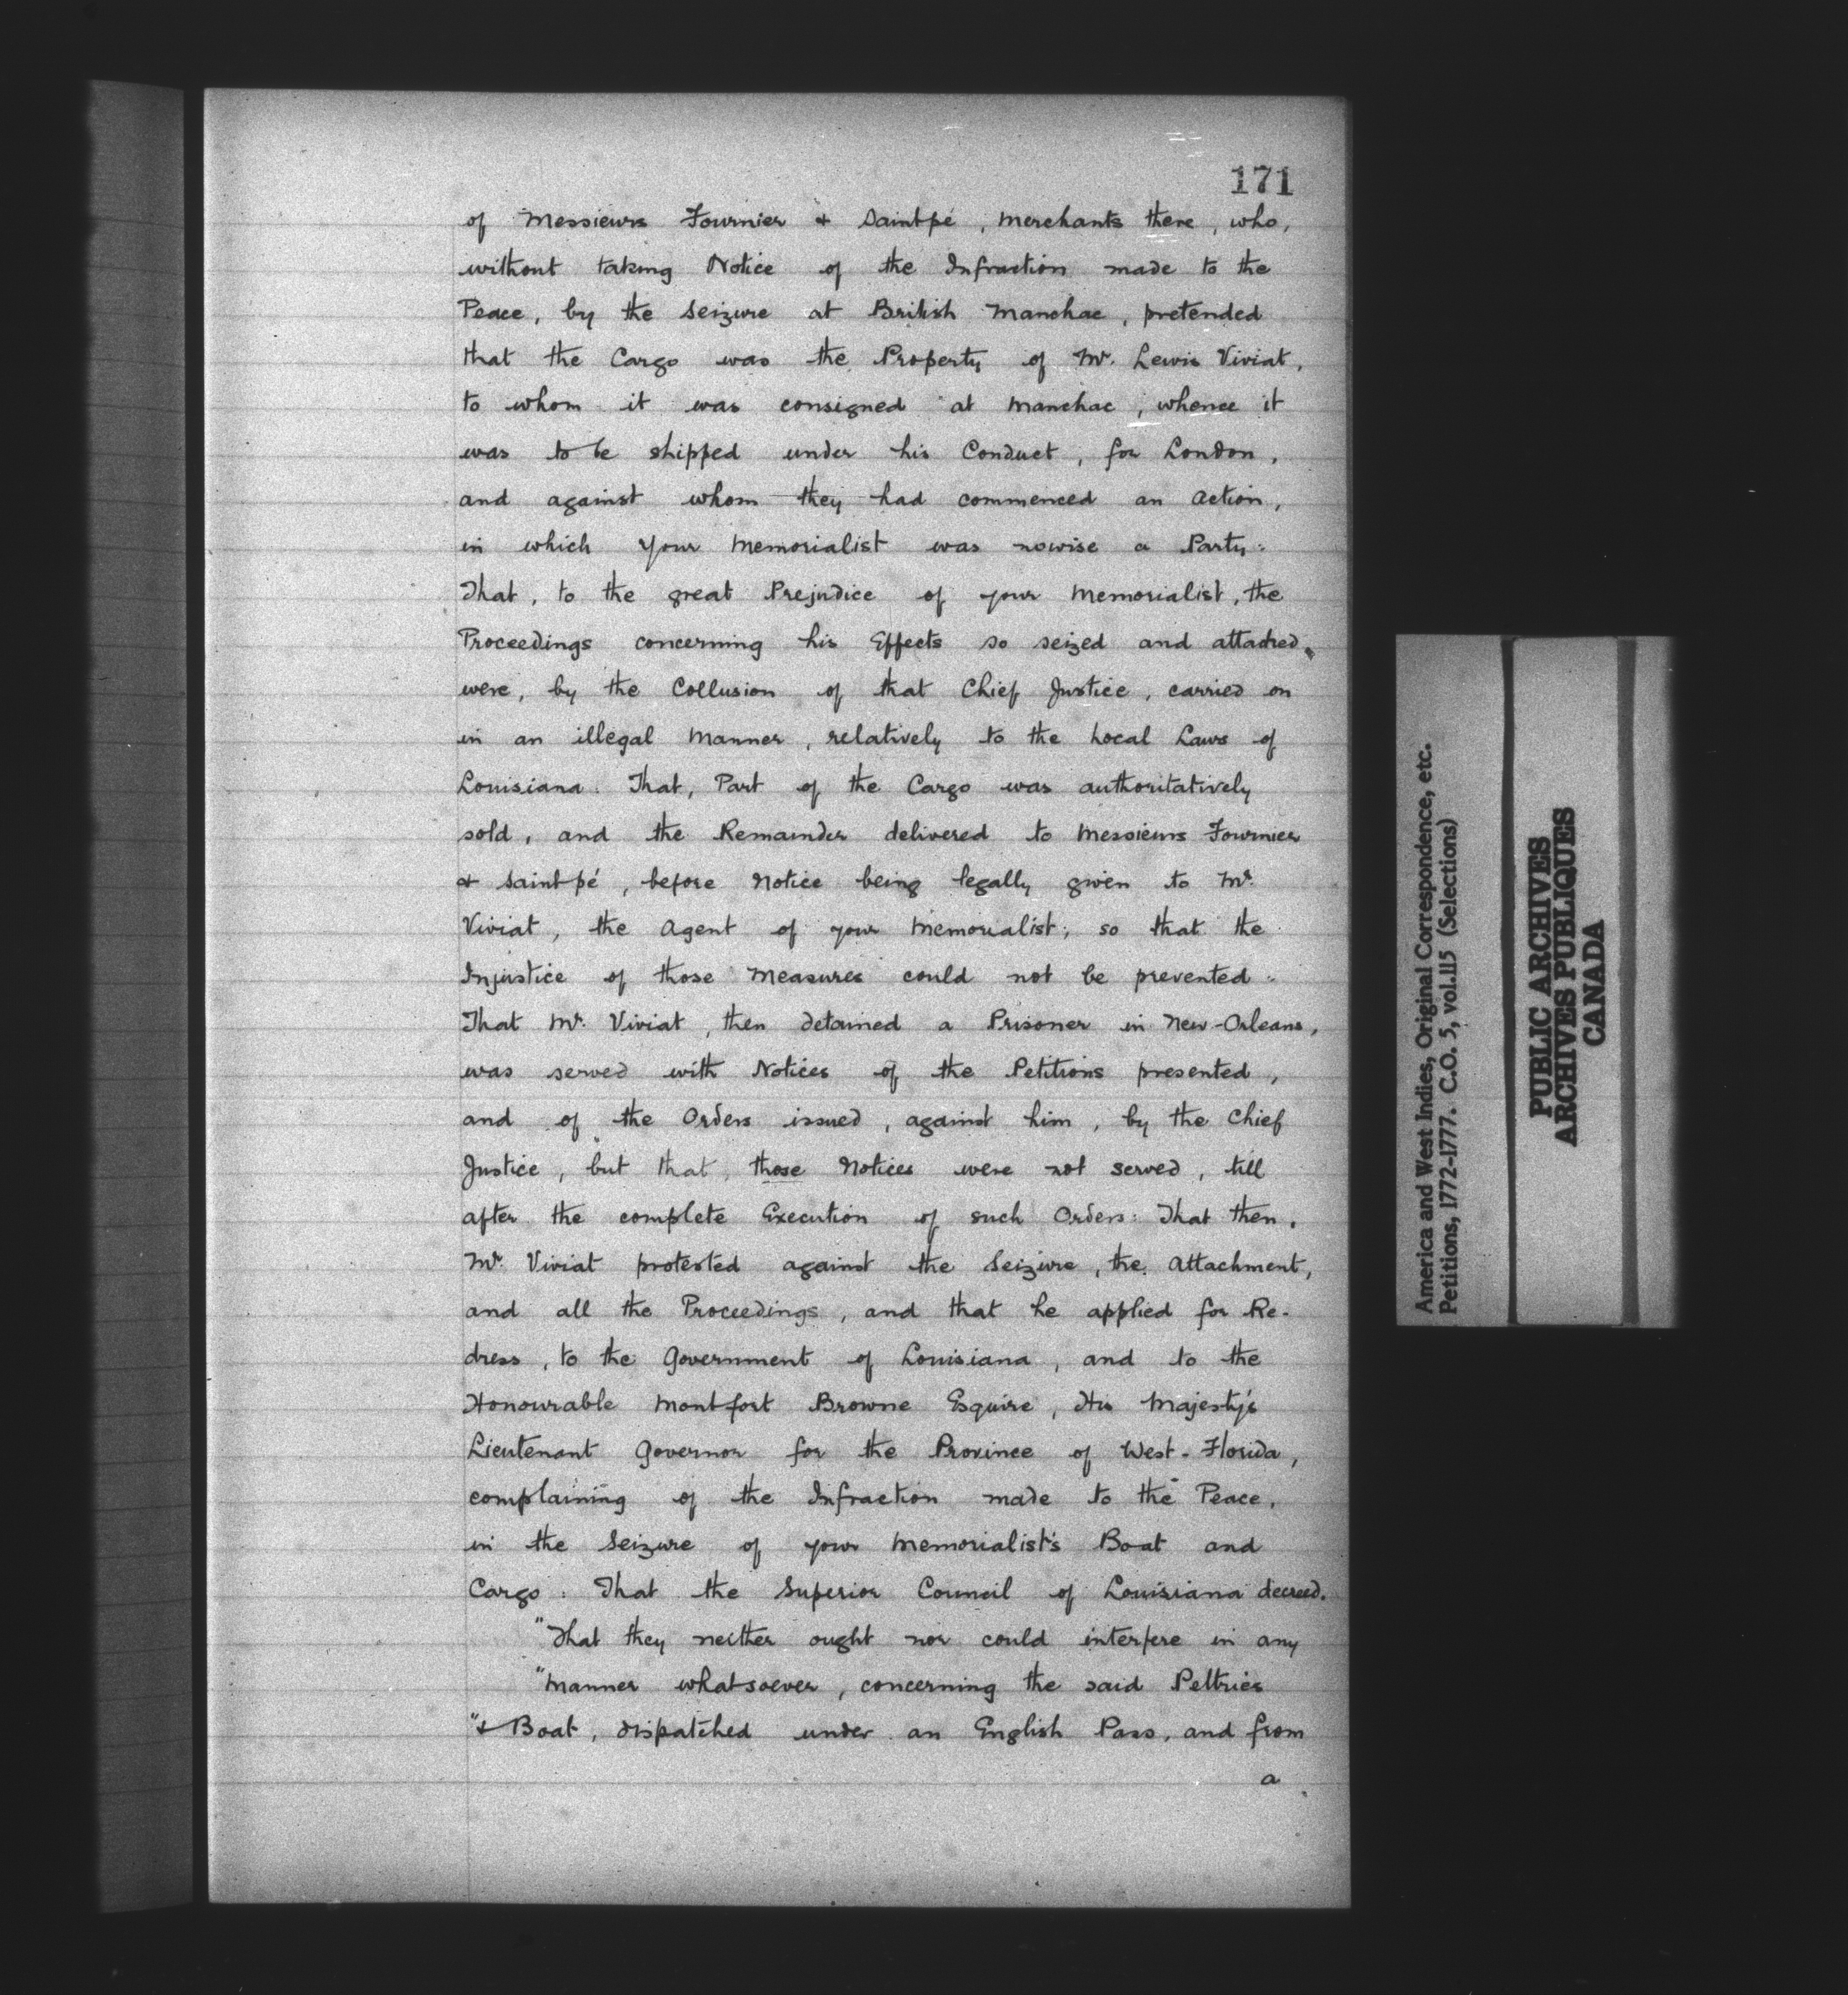 171
of Messieurs Fournier & Saintpé, Merchants there, who,
without taking Notice of the Infraction made to the
Peace, by the Seizure at British Manchac, pretended
that the Cargo was the Property of Mr. Lewis Viviat,
to whom it was consigned at Manchac, whence it
was to be shipped under his Conduct, for London,
and against whom they had commenced an Action,
in which your Memorialist was nowise a Party:
That, to the great Prejudice of your Memorialist, the
Proceedings concerning his Effects so seized and attached,
were, by the Collusion of that Chief Justice, carried on
in an illegal Manner, relatively to the Local Laws of
Louisiana: That, Part of the Cargo was authoritatively
sold, and the Remainder delivered to Messieurs Fournier
& Saintpé, before Notice being legally given to Mr.
Viviat, the Agent of your Memorialist; so that the
Injustice of those Measures could not be prevented:
That Mr. Viviat, then detained a Prisoner in New-Orleans,
was served with Notices of the Petitions presented,
and of the Orders issued, against him, by the Chief
Justice, but that, those Notices were not served, till
after the complete Execution of such Orders: That then,
Mr. Viviat protested against the Seizure, the Attachment,
and all the Proceedings, and that he applied for Re-
dress, to the Government of Louisiana, and to the
Honourable Montfort Browne Esquire, His Majesty's
Lieutenant Governor for the Province of West-Florida,
complaining of the Infraction made to the Peace,
in the Seizure of your Memorialist's Boat and
Cargo: That the Superior Council of Louisiana decreed.
"That they neither ought nor could interfere in any
"Manner whatsoever, concerning the said Peltries
"& Boat, dispatched under an English Pass, and from
a
America and West Indies, Original Correspondence, etc.
Petitions, 1772-1777. C.O. 5, vol.115 (Selections)
PUBLIC ARCHIVES
ARCHIVES PUBLIQUES
CANADA